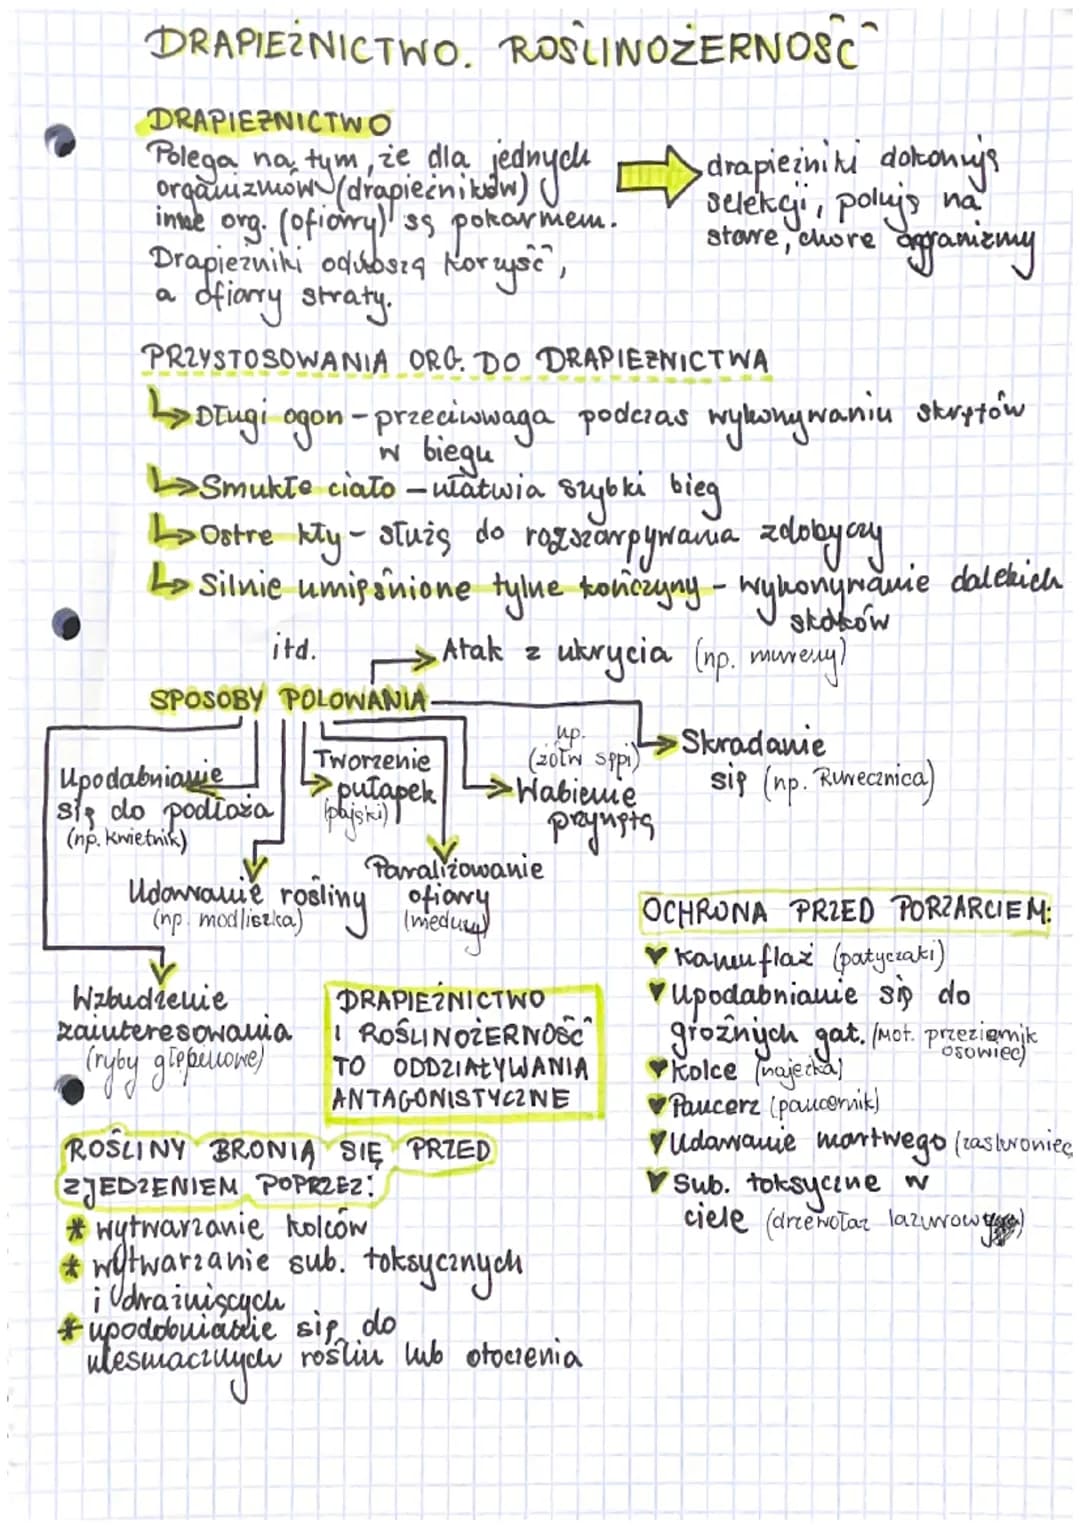 DRAPIEŻNICTWO. ROŚLINOŻERNOŚĆ
DRAPIEŻNICTWO
Polega na tym, że dla jednych
organizmów (drapieżników)
inne org. (ofiary) są pokarmem.
Drapieżniki odnoszą korzyść,
a ofiary straty.
drapieżniki dokonują
selekcji, polują na
stare, chore organizmy
PRZYSTOSOWANIA ORG. DO DRAPIEŻNICTWA
Długi ogon - przeciwwaga podczas wykonywaniu skrętów
w biegu
Smukłe ciało - ułatwia szybki bieg
Ostre kły - służą do rozszarpywania zdobyczy
Silnie umięśnione tylne kończyny - wykonywanie dalekich
skoków
itd.
Atak z ukrycia (np. mureny)
SPOSOBY POLOWANIA
Skradanie
się (np. Rurecznica)
np.
(żółw sępi)
Wabienie
przynętą
Tworzenie
pułapek
(pająki)
Upodabnianie
się do podłoża
(np. kwietnik)
Paraliżowanie
ofiary
(meduzy)
Udawanie rośliny
(np. modliszka)
Wzbudzenie
zainteresowania
(ryby głębinowe)
DRAPIEŻNICTWO
I ROŚLINOŻERNOŚĆ
TO ODDZIAŁYWANIA
ANTAGONISTYCZNE
OCHRONA PRZED PORZARCIEM:
Kamuflaż (patyczaki)
Upodabnianie się do
groźnych gat. (Mot. przeziernik
osowiec)
Kolce (najeżka)
Pancerz (pancernik)
Udawanie martwego (zaskroniec
Sub. toksyczne w
ciele (drzewołaz lazurowy)
ROŚLINY BRONIĄ SIĘ PRZED
ZJEDZENIEM POPRZEZ:
* wytwarzanie kolców
* wytwarzanie sub. toksycznych
i drażniących
* upodobnianie się do
niesmacznych roślin lub otoczenia